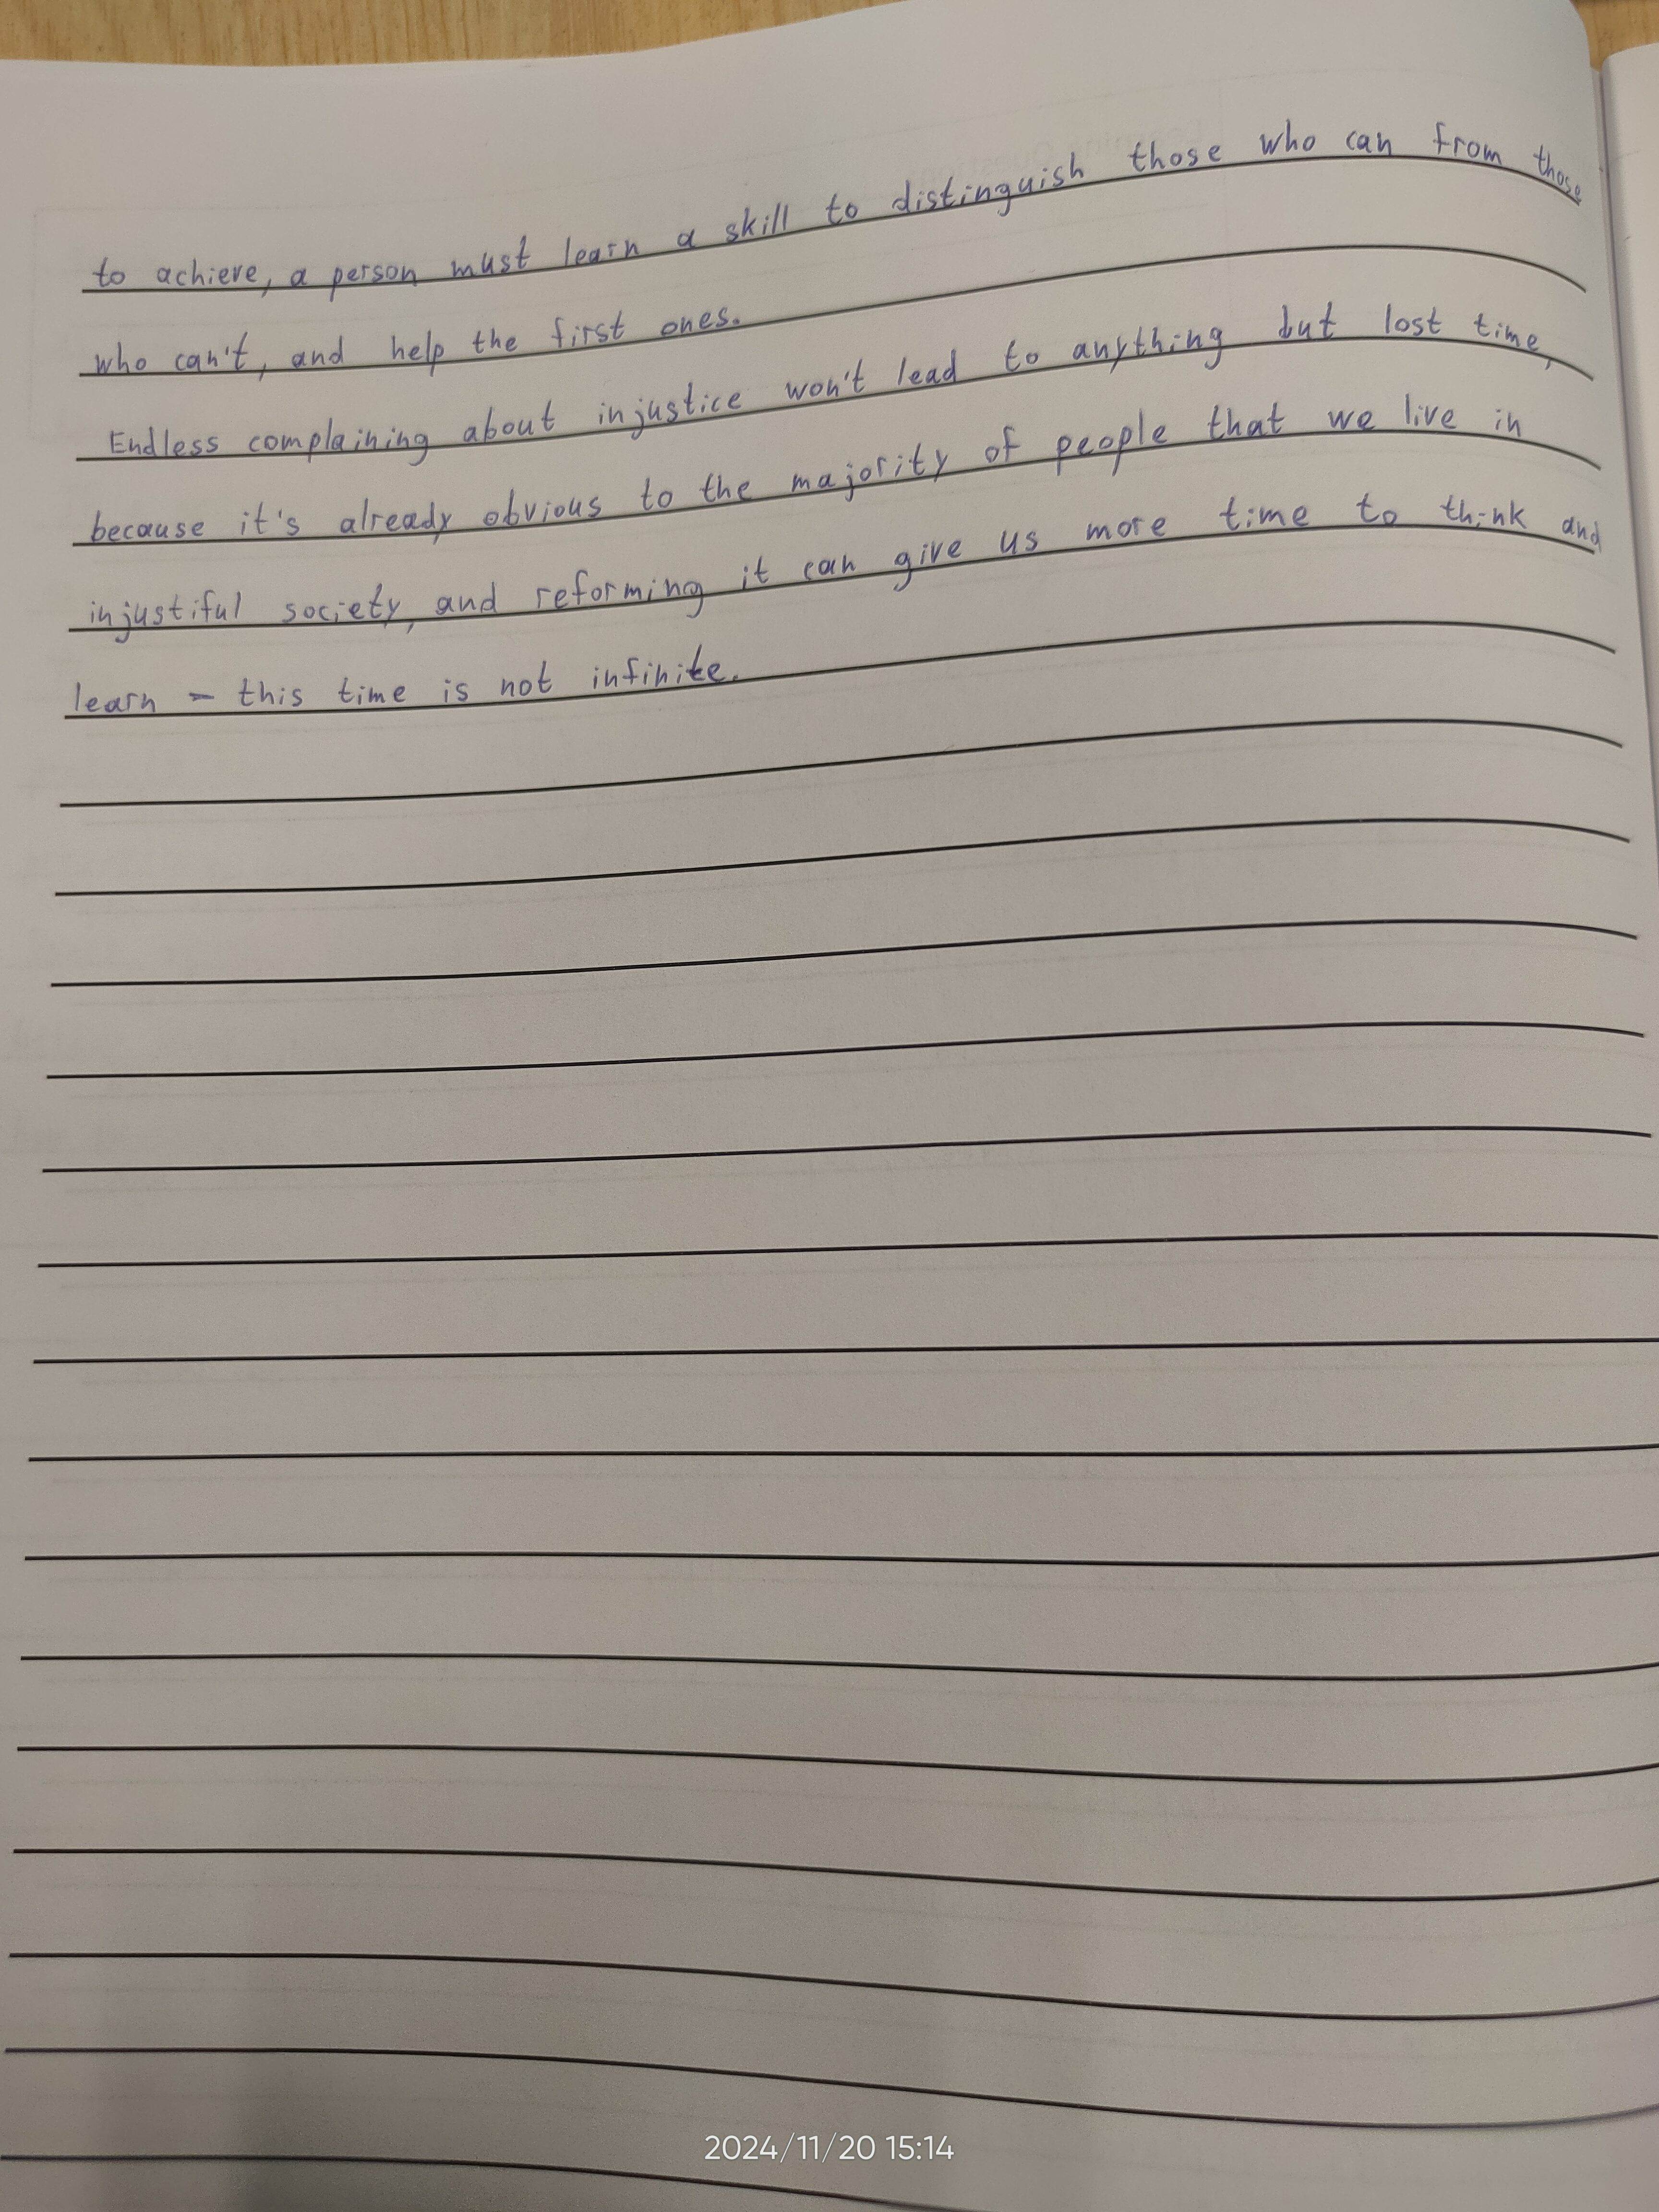 to achieve, a person must learn a skill to distinguish those who can from those
who can't, and help the first ones.
Endless complaining about injustice won't lead to anything but lost time,
because it's already obvious to the majority of people that we live in
injustiful society, and reforming it can give us more time to think and
learn – this time is not infinite.
2024/11/20 15:14